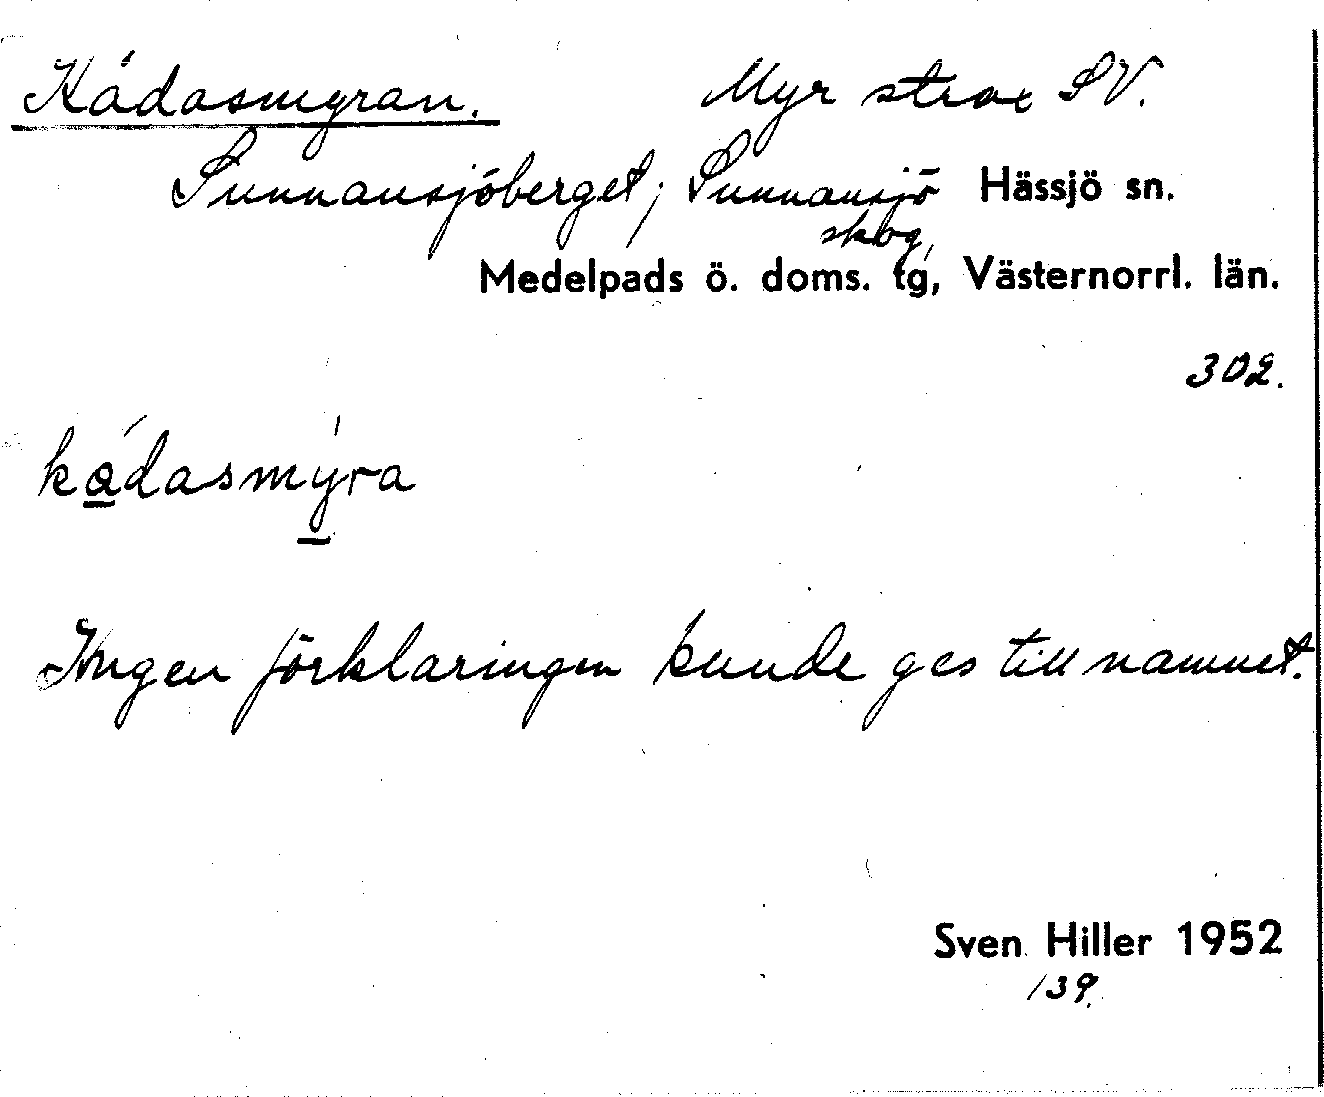 Kådasmyran. Myr strax SV.
Sunnansjöberget; Sunnansjö Hässjö sn.
skog,
Medelpads ö. doms. tg, Västernorrl. län.
302.
kådasmyra
Ingen förklaringen kunde ges till namnet.
Sven Hiller 1952
139.